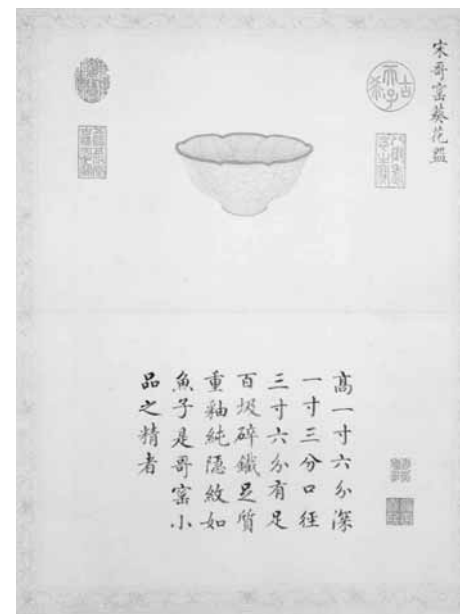 宋哥窑葵花盌
古希天子
高一寸六分深
一寸三分口徑
三寸六分有足
百圾碎鐵足質
重釉純隱紋如
魚子是哥窑小
品之精者